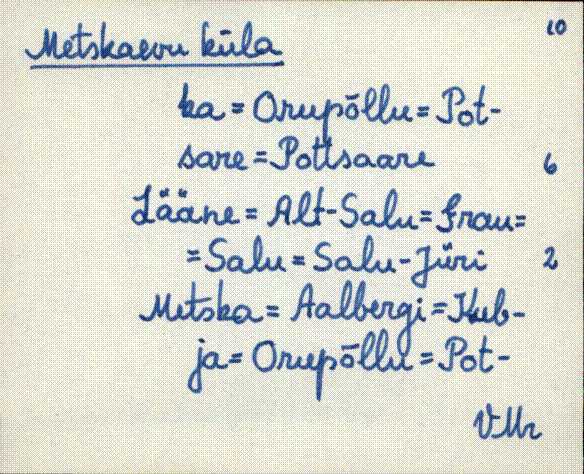 10
Metskaevu küla
ka = Orupõllu = Pot-
sare = Pottsaare 6
Lääne = Alt-Salu = Frau =
= Salu = Salu-Jüri 2
Metska = Aalbergi = Kub-
ja = Orupõllu = Pot-
VMr